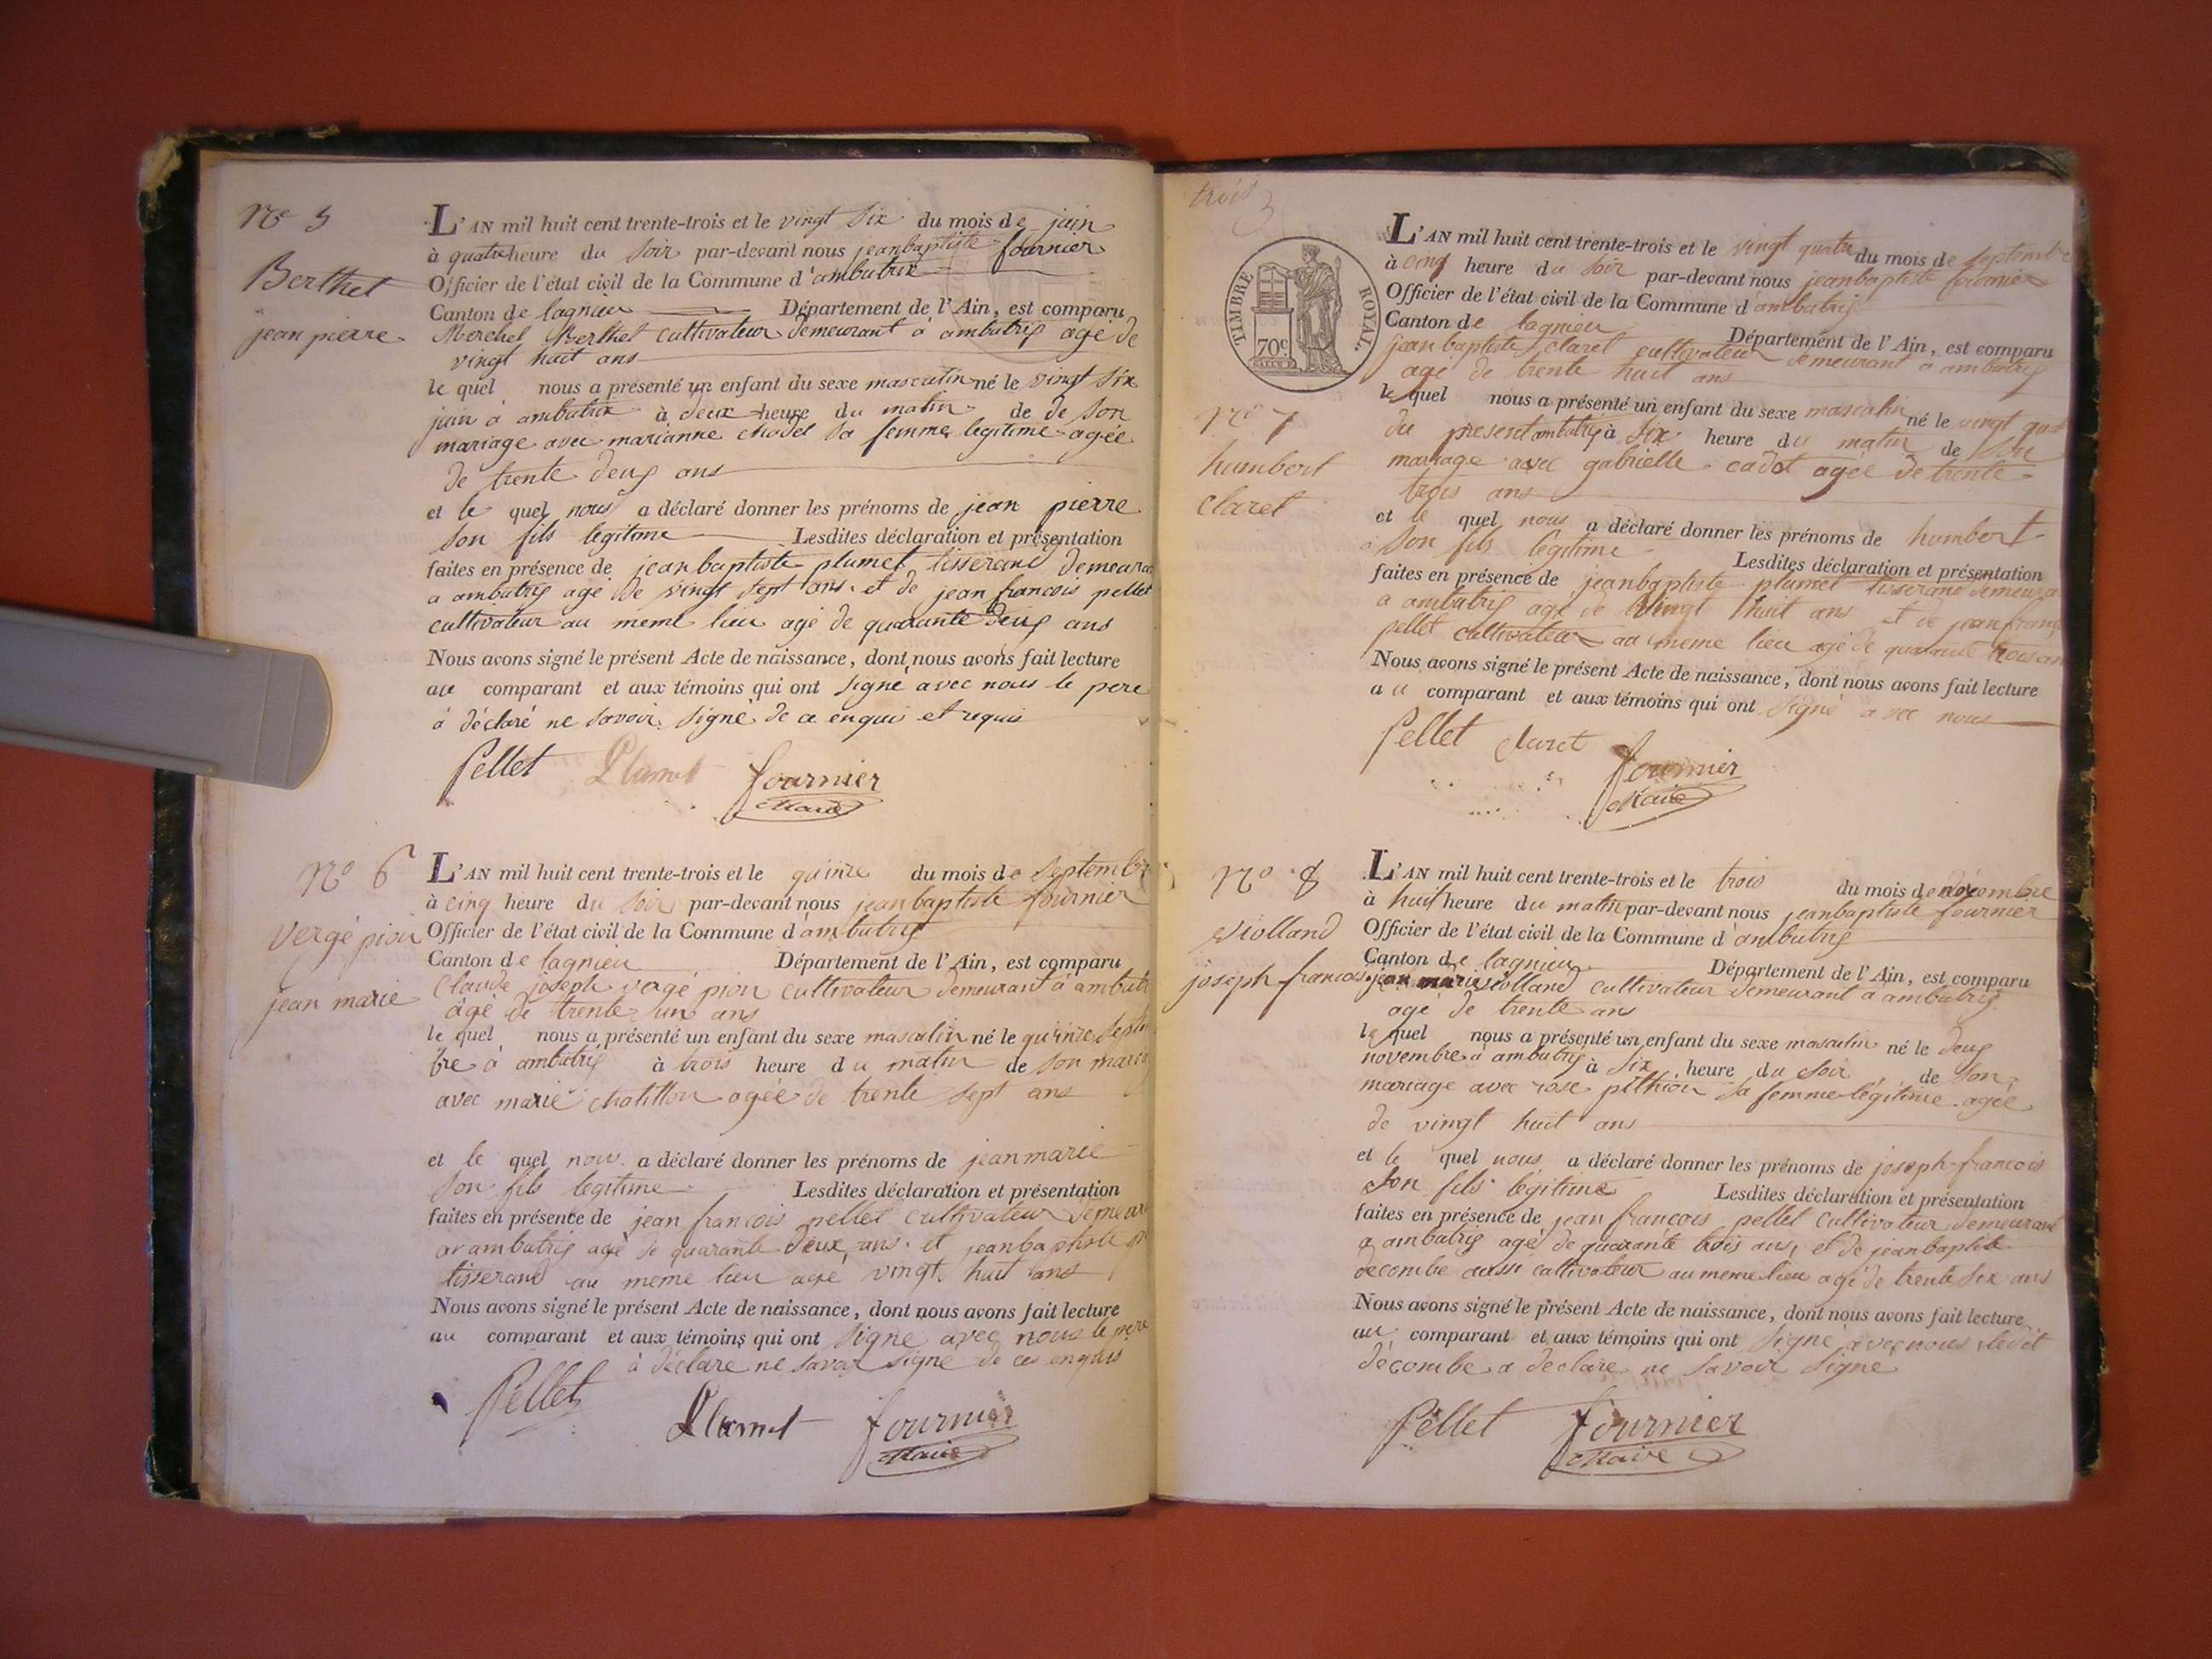 N° 5
Berthet
jean pierre
L'AN mil huit cent trente-trois et le vingt six du mois de juin
à quatre heure du soir par-devant nous jeanbaptiste fournier
Officier de l'état civil de la Commune d'ambutrix
Canton de lagnieu Département de l'Ain, est comparu
Berthet cultivateur demeurant à ambutrix agé de
vingt huit ans
le quel nous a présenté un enfant du sexe masculin né le vingt six
juin à ambutrix à deux heure du matin de de son
mariage avec marianne chodel sa femme legitime agée
de trente deux ans
et le quel nous a déclaré donner les prénoms de jean pierre
son fils legitime Lesdites déclaration et présentation
faites en présence de jeanbaptiste plumet tisserand demeura
a ambutrix agé de vingt sept ans et de jean francois pellet
cultivateur au meme lieu agé de quarante deux ans
Nous avons signé le présent Acte de naissance, dont nous avons fait lecture
au comparant et aux témoins qui ont signé avec nous le pere
à déclaré ne savoir signé de ce enquis et requis
Pellet Plumet fournier
Maire
N° 6
vergé pion
jean marie
L'AN mil huit cent trente-trois et le quinze du mois de septembre
à cinq heure du soir par-devant nous jeanbaptiste fournier
Officier de l'état civil de la Commune d'ambutrix
Canton de lagnieu Département de l'Ain, est comparu
Claude joseph vergé pion cultivateur demeurant à ambutri
agé de trente un ans
le quel nous a présenté un enfant du sexe masculin né le quinze septem
bre à ambutrix à trois heure du matin de son maria
avec marie chatillon agée de trente sept ans
et le quel nous a déclaré donner les prénoms de jeanmarie
son fils legitime Lesdites déclaration et présentation
faites en présence de jean francois pellet cultivateur demeur
a ambutrix agé de quarante deux ans et jeanbaptiste
tisserand au meme lieu agé vingt huit ans
Nous avons signé le présent Acte de naissance, dont nous avons fait lecture
au comparant et aux témoins qui ont signe avec nous le pere
à déclare ne savoir signé de ce enquis
Pellet Plumet fournier
Maire
trois 3
TIMBRE ROYAL.
70c
N° 7
humbert
claret
L'AN mil huit cent trente-trois et le vingt quatre du mois de septembre
à cinq heure du soir par-devant nous jeanbaptiste fournier
Officier de l'état civil de la Commune d'ambutrix
Canton de lagnieu Département de l'Ain, est comparu
jeanbaptiste claret cultivateur demeurant a ambutrix
agé de trente huit ans
le quel nous a présenté un enfant du sexe masculin né le vingt qua
du present ambutrix à six heure du matin de son
mariage avec gabrielle cadot agée de trente
trois ans
et le quel nous a déclaré donner les prénoms de humbert
à son fils légitime Lesdites déclaration et présentation
faites en présence de jeanbaptiste plumet tisserand demeura
a ambutrix agé de vingt huit ans et de jean franç
pellet cultivateur au meme lieu agé de quarante trois an
Nous avons signé le présent Acte de naissance, dont nous avons fait lecture
au comparant et aux témoins qui ont signé avec nous
Pellet claret fournier
Maire
N° 8
violland
joseph francois
L'AN mil huit cent trente-trois et le trois du mois de
à huit heure du matin par-devant nous jeanbaptiste fournier
Officier de l'état civil de la Commune d'ambutrix
Canton de lagnieu Département de l'Ain, est comparu
jean marie violland cultivateur demeurant a ambutrix
agé de trente ans
le quel nous a présenté un enfant du sexe masculin né le deux
novembre a ambutrix à six heure du soir de son
mariage avec rose pithion sa femme légitime agée
de vingt huit ans
et le quel nous a déclaré donner les prénoms de joseph francois
son fils légitime Lesdites déclaration et présentation
faites en présence de jean francois pellet cultivateur demeurant
a ambutrix agé de quarante trois ans et de jeanbaptiste
decombe aussi cultivateur au meme lieu agé de trente six ans
Nous avons signé le présent Acte de naissance, dont nous avons fait lecture
au comparant et aux témoins qui ont signé avec nous ledit
decombe a declare ne savoir signe
Pellet fournier
Maire